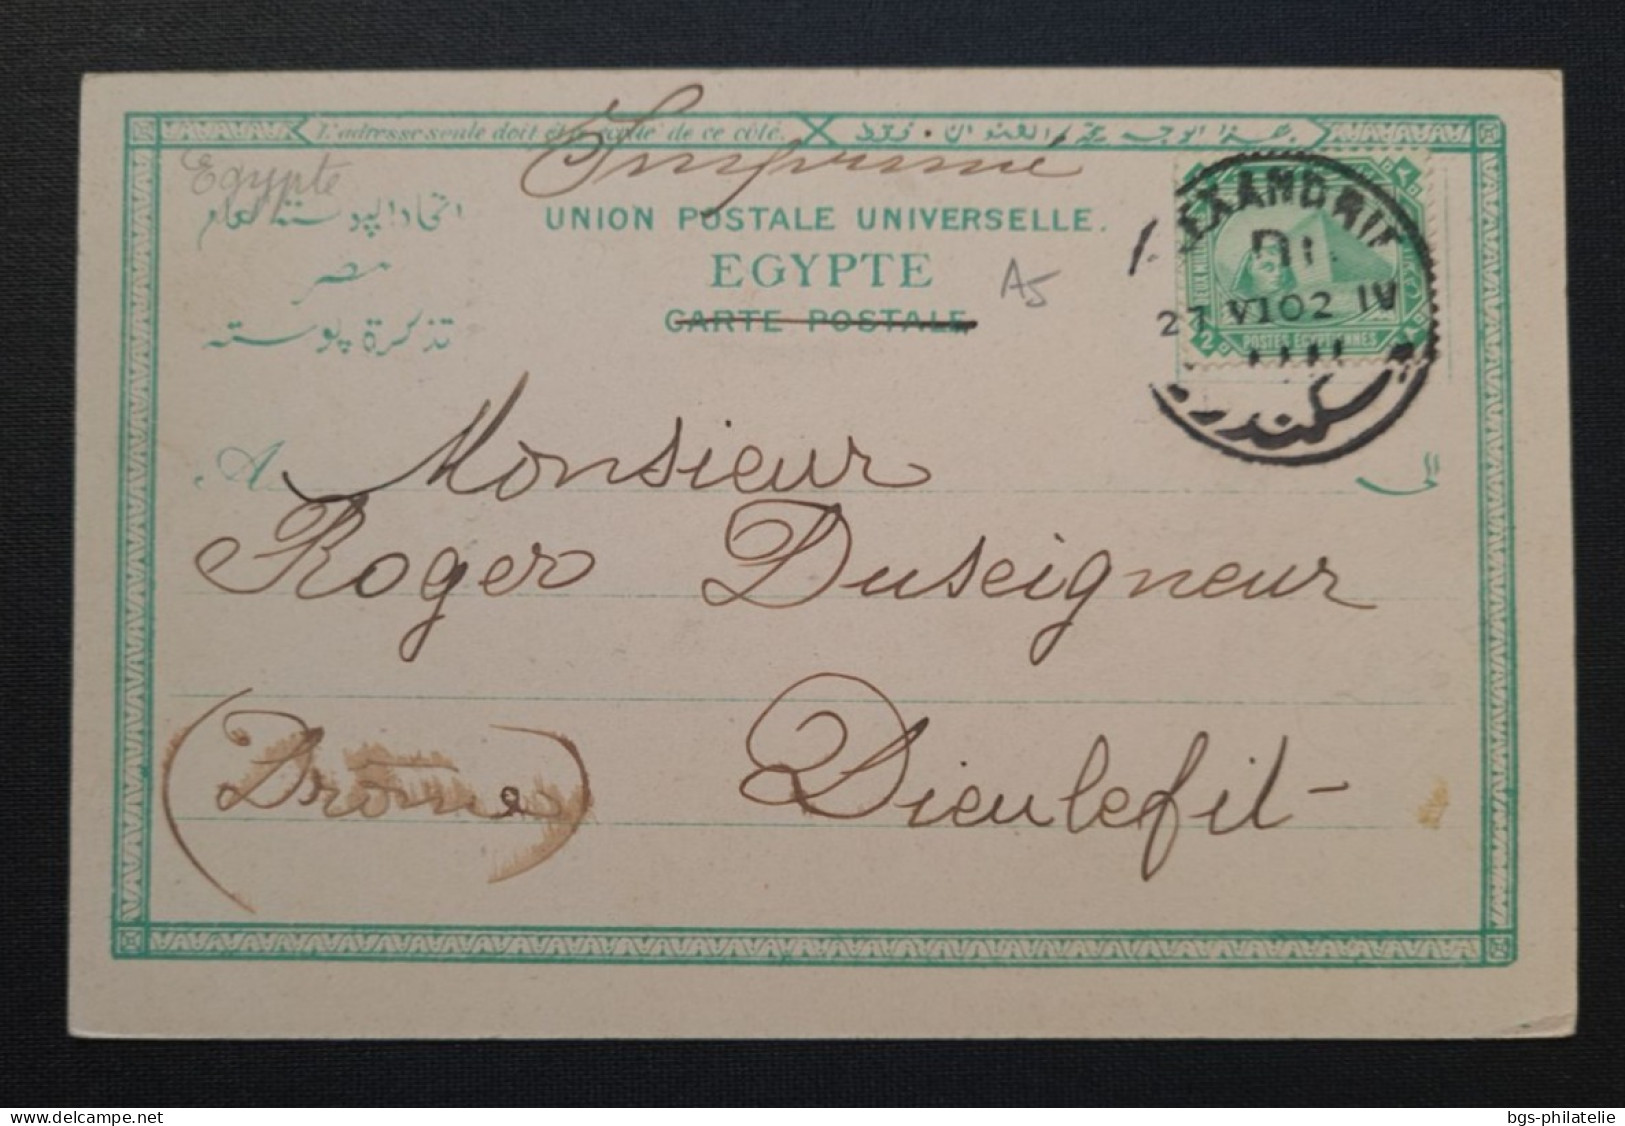 L'adresse seule doit être écrite de ce côté.
Imprimé
Egypte
UNION POSTALE UNIVERSELLE.
EGYPTE
CARTE POSTALE
A5
اتحاد البوسته العام
مصر
تذكرة پوسته
EXANDRIE
27 VI 02 IV
2
POSTES EGYPTIENNES
سكندر
A Monsieur
الى
Roger Duseigneur
(Drôme) Dieulefit-
delcampe.net
bgs-philatelie